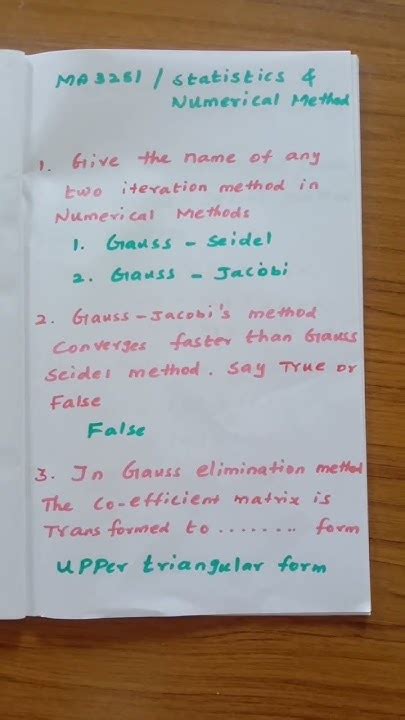 MA3251 / Statistics &
Numerical Method
1. Give the name of any
two iteration method in
Numerical Methods
1. Gauss - Seidel
2. Gauss - Jacobi
2. Gauss - Jacobi's method
converges faster than Gauss
Seidel method. Say True or
False
False
3. In Gauss elimination method
The co-efficient matrix is
Transformed to ........ form
Upper triangular form